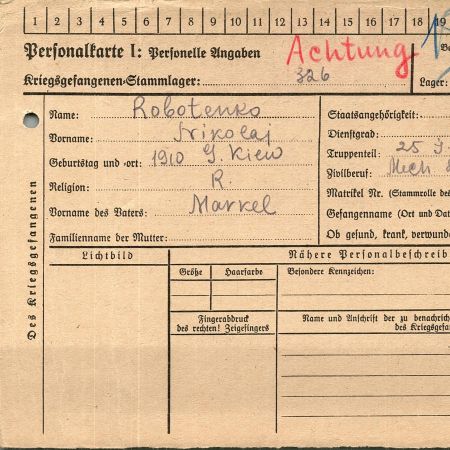 1 2 3 4 5 6 7 8 9 10 11 12 13 14 15 16 17 18 19
Personalkarte I: Personelle Angaben
Achtung
Kriegsgefangenen-Stammlager: 326
Lager:
Des Kriegsgefangenen
Name: Robotenko
Vorname: Nikolaj
Geburtstag und -ort: 1910 G. Kiew
Religion: R.
Vorname des Vaters: Markel
Familienname der Mutter:
Staatsangehörigkeit:
Dienstgrad:
Truppenteil: 25
Zivilberuf: Mech
Matrikel Nr. (Stammrolle des
Gefangenname (Ort und Dat
Ob gesund, krank, verwunde
Lichtbild
Nähere Personalbeschreib
Größe
Haarfarbe
Besondere Kennzeichen:
Fingerabdruck
des rechten! Zeigefingers
Name und Anschrift der zu benachric
des Kriegsgefa